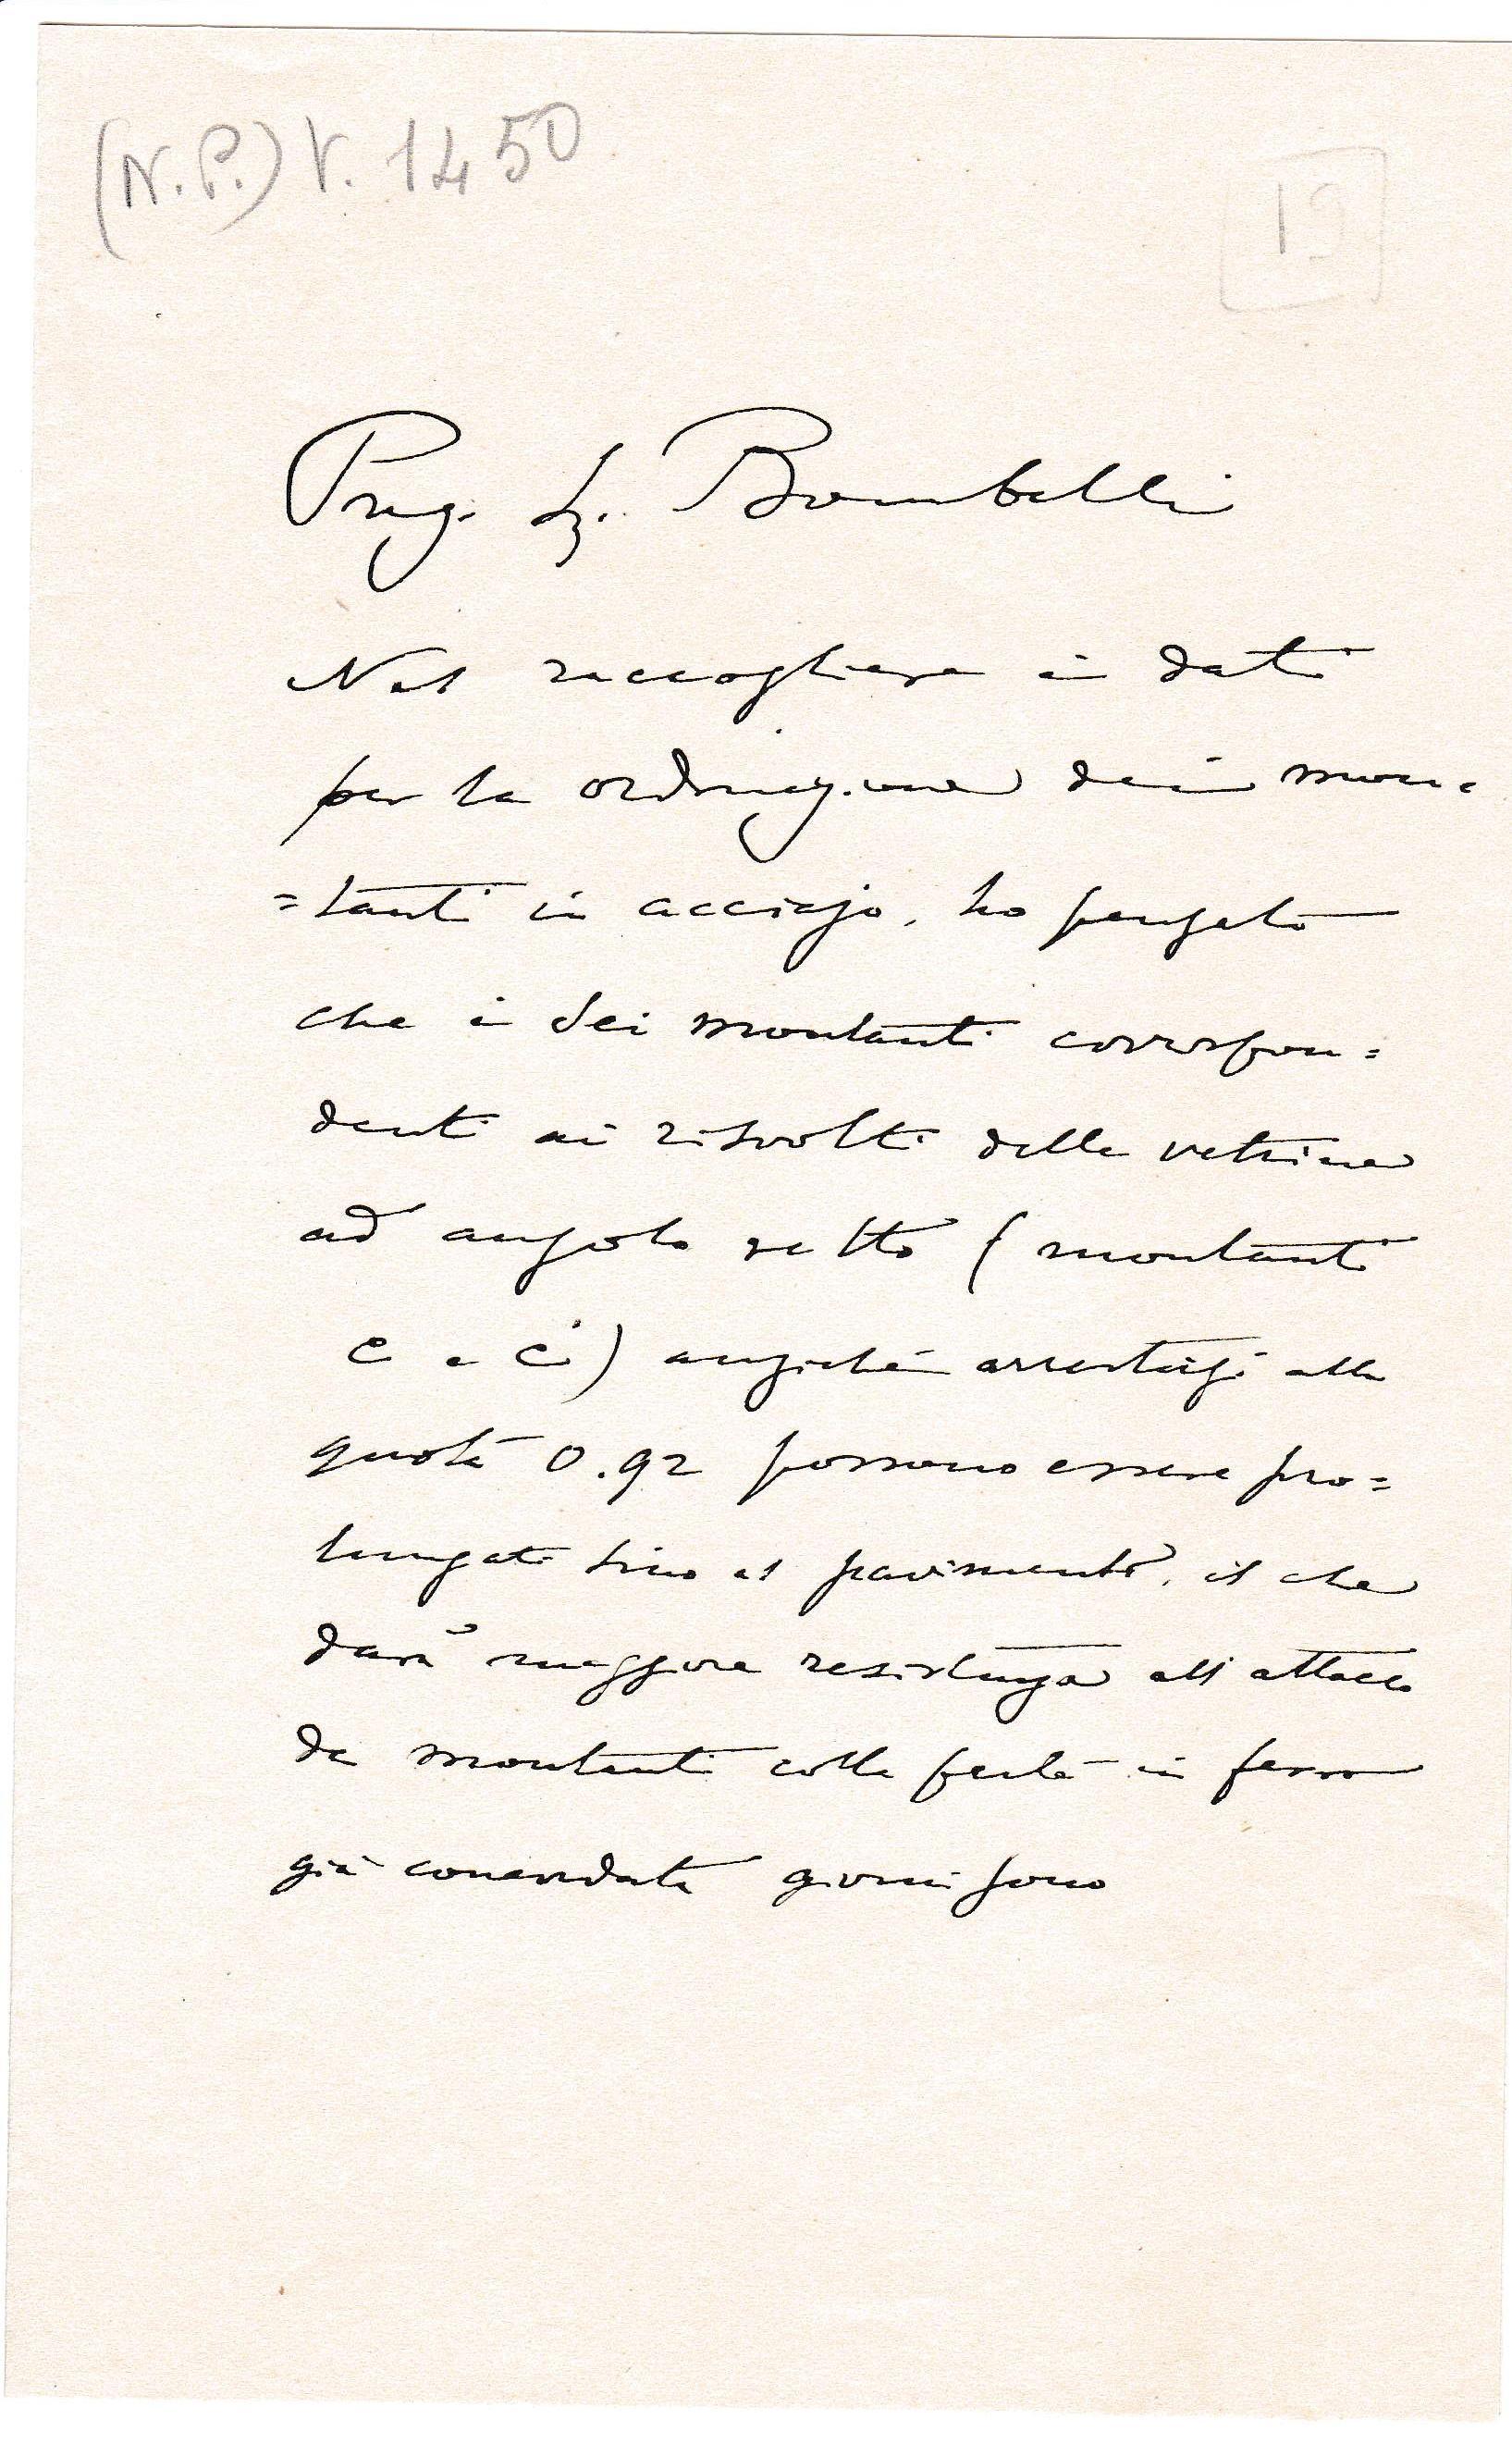 (N.P.) V. 1450
19
Preg. S. Bombelli
Nel raccogliere i dati
per la ordinazione dei mon=
=tanti in acciajo, ho pensato
che i sei montanti corrispon=
denti ai risvolti delle vetrine
ad angolo retto (montanti
c e c') anziché arrestarsi alla
quota 0.92 possono essere pro=
lungati sino al pavimento, il che
darà maggiore resistenza all'attacco
dei montanti colle parti in ferro
già comandate giorni sono